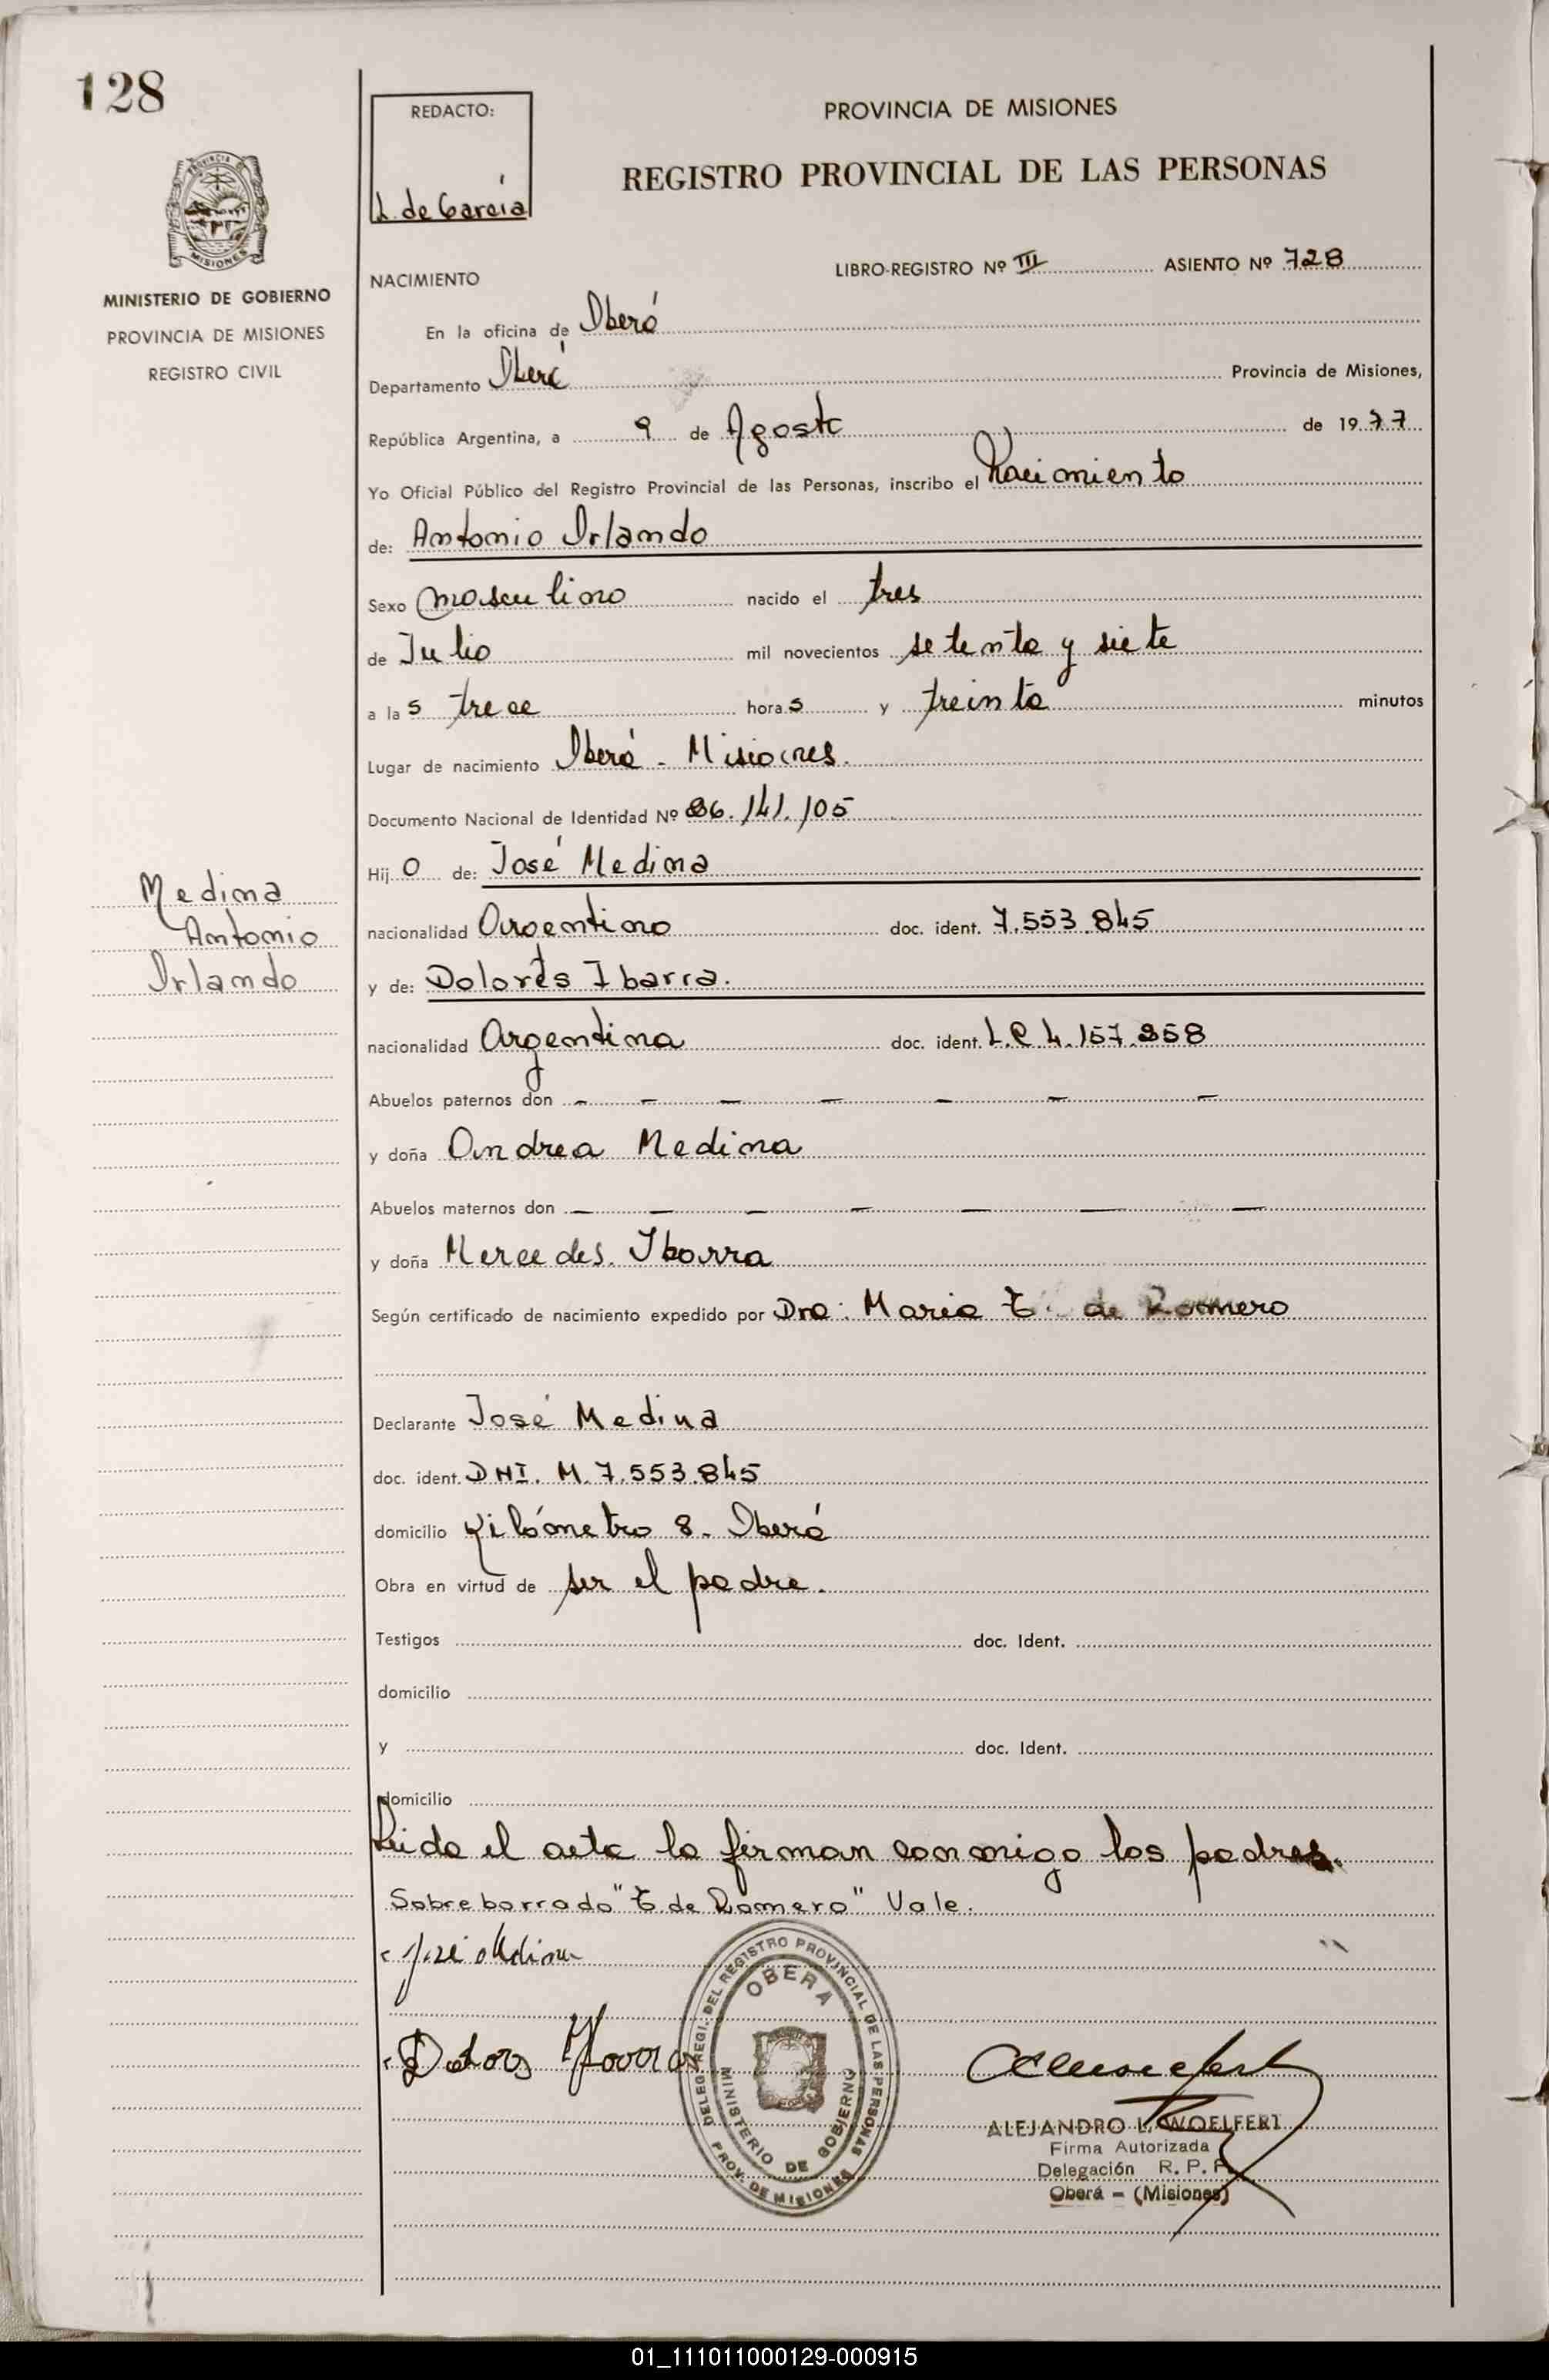 128
REDACTO:
L. de García
PROVINCIA DE MISIONES
REGISTRO PROVINCIAL DE LAS PERSONAS
PROVINCIA DE
MISIONES
MINISTERIO DE GOBIERNO
PROVINCIA DE MISIONES
REGISTRO CIVIL
NACIMIENTO
LIBRO-REGISTRO Nº III ASIENTO Nº 728
En la oficina de Oberá
Departamento Oberá Provincia de Misiones,
República Argentina, a 9 de Agosto de 1977
Yo Oficial Público del Registro Provincial de las Personas, inscribo el Nacimiento
de: Antonio Orlando
Sexo masculino nacido el tres
de Julio mil novecientos setenta y siete
a las trece horas y treinta minutos
Lugar de nacimiento Oberá - Misiones.
Documento Nacional de Identidad Nº 26.141.105
Hijo de: José Medina
Medina
Antonio
Orlando
nacionalidad Argentino doc. ident. 7.553.845
y de: Dolores Ibarra.
nacionalidad Argentina doc. ident. L.C 4.157.258
Abuelos paternos don - - - - - - -
y doña Andrea Medina
Abuelos maternos don - - - - - - -
y doña Mercedes. Ibarra
Según certificado de nacimiento expedido por Dra: Maria T. de Romero
Declarante José Medina
doc. ident. DNI. M. 7.553.845
domicilio Kilómetro 8. Oberá
Obra en virtud de ser el padre.
Testigos doc. Ident.
domicilio
y doc. Ident.
domicilio
Leida el acta la firman conmigo los padres.
Sobreborrado "T de Romero" Vale.
José Medina
Dolores Ibarra
DELEG. REGI. DEL REGISTRO PROVINCIAL DE LAS PERSONAS
PROV. DE MISIONES
OBERA
MINISTERIO DE GOBIERNO
ALEJANDRO L. WOELFERT
Firma Autorizada
Delegación R. P. P.
Oberá - (Misiones)
01_111011000129-000915